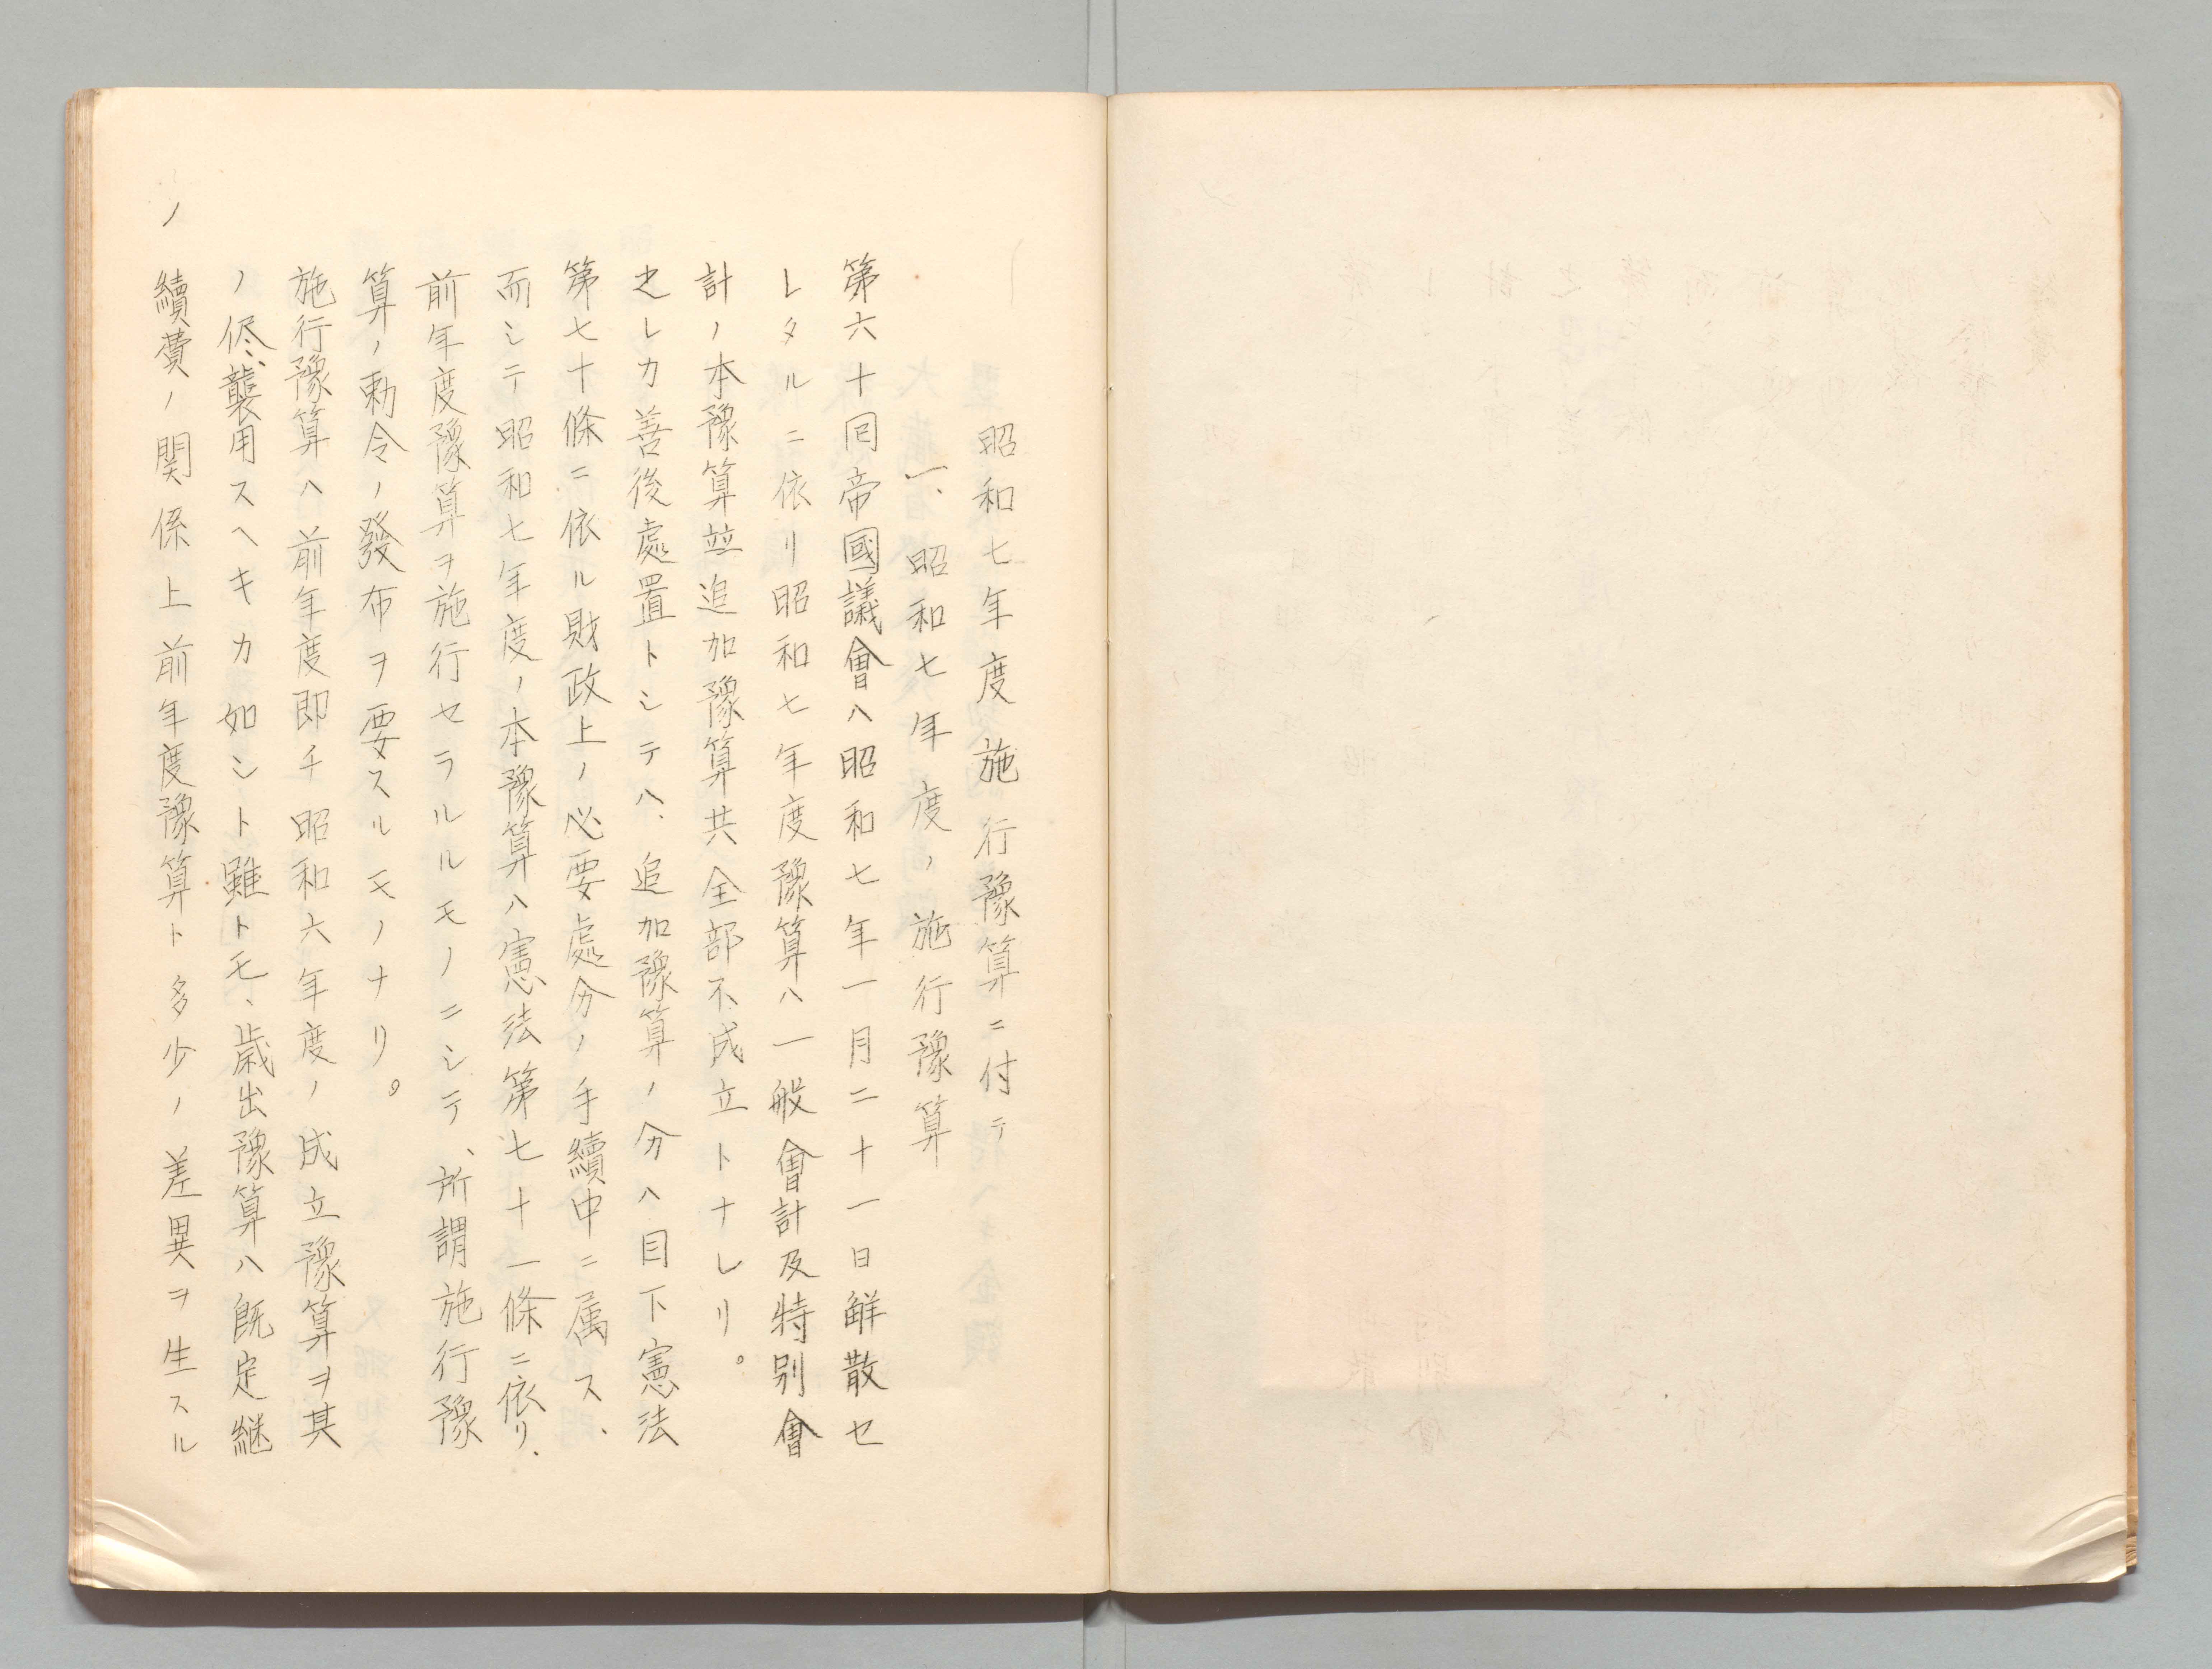 昭和七年度施行豫算ニ付テ
一、昭和七年度ノ施行豫算
第六十回帝國議會ハ昭和七年一月二十一日解散セ
レタルニ依リ昭和七年度豫算ハ一般會計及特別會
計ノ本豫算並追加豫算共全部不成立トナレリ。
之レカ善後處置トシテハ、追加豫算ノ分ハ目下憲法
第七十條ニ依ル財政上ノ必要處分ノ手續中ニ属ス、
而シテ昭和七年度ノ本豫算ハ憲法第七十一條ニ依リ、
前年度豫算ヲ施行セラルルモノニシテ、所謂施行豫
算ノ勅令ノ發布ヲ要スルモノナリ。
施行豫算ハ前年度即チ昭和六年度ノ成立豫算ヲ其
ノ侭襲用スヘキカ如シト雖トモ、歳出豫算ハ既定継
續費ノ関係上前年度豫算ト多少ノ差異ヲ生スル
ノ